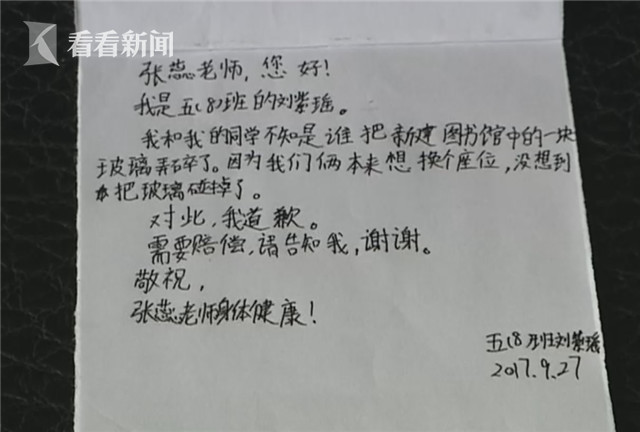 看看新闻
张蕊老师，您好！
我是五(8)班的刘紫瑶。
我和我的同学不知是谁把新建图书馆中的一块
玻璃弄碎了。因为我们俩本来想换个座位，没想到
把玻璃碰掉了。
对此，我道歉。
需要赔偿，请告知我，谢谢。
敬祝，
张蕊老师身体健康！
五(8)班刘紫瑶
2017.9.27